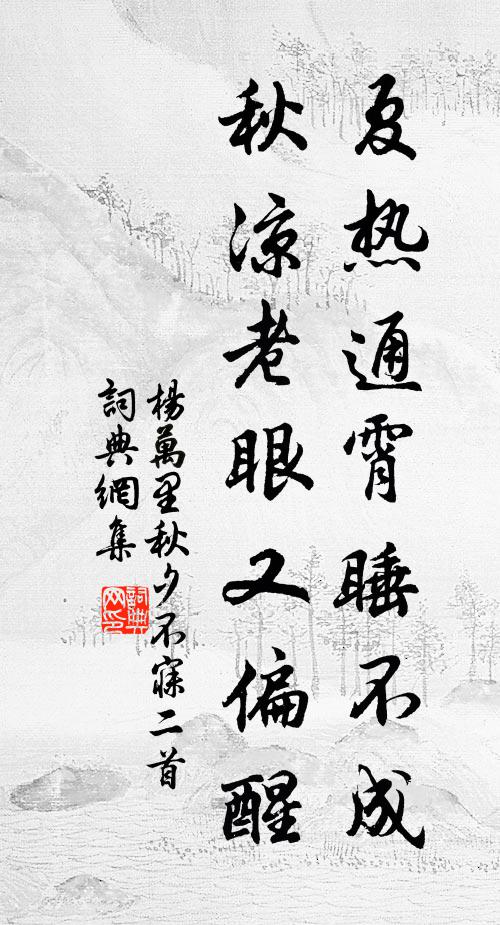 夏热通霄睡不成
秋涼老眼又偏醒
楊萬里秋夕不寐二首
詞典網集
詞典網印